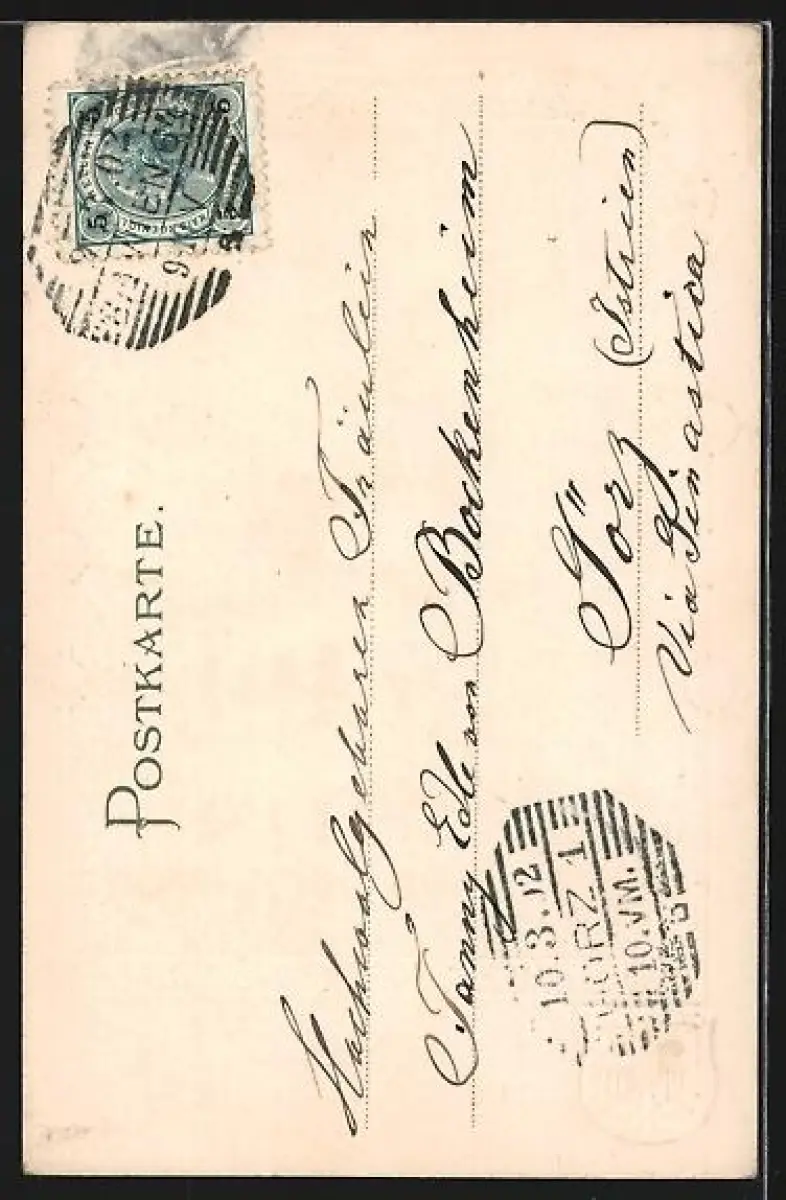 POSTKARTE.
Hochwohlgeboren Fräulein
Fanny Edle von Bockenheim
Görz (Istrien)
Via Ginastica
10.3.02
GÖRZ 1
10.VM.
5
5